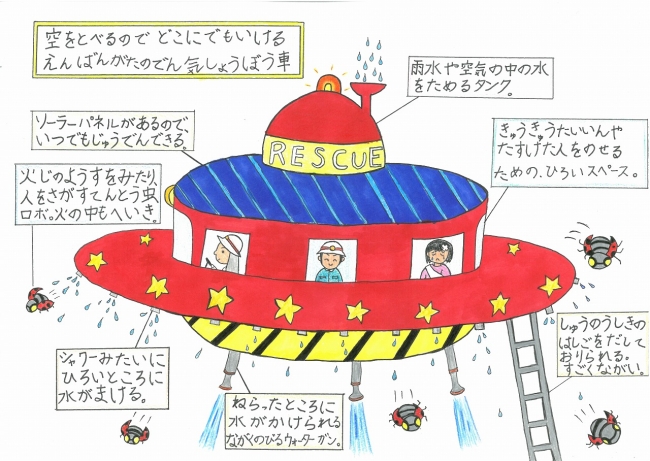 空をとべるので どこにでもいける
えんばんがたのでん気しょうぼう車
雨水や空気の中の水
をためるタンク。
ソーラーパネルがあるので
いつでもじゅうでんできる。
RESCUE
きゅうきゅうたいいんや
たすけた人をのせる
ための、ひろいスペース。
火じのようすをみたり、
人をさがすてんとう虫
ロボ。火の中もへいき。
シャワーみたいに
ひろいところに
水がまける。
ねらったところに
水がかけられる
ながくのびるウォーターガン。
しゅうのうしきの
はしごをだして
おりられる。
すごくながい。